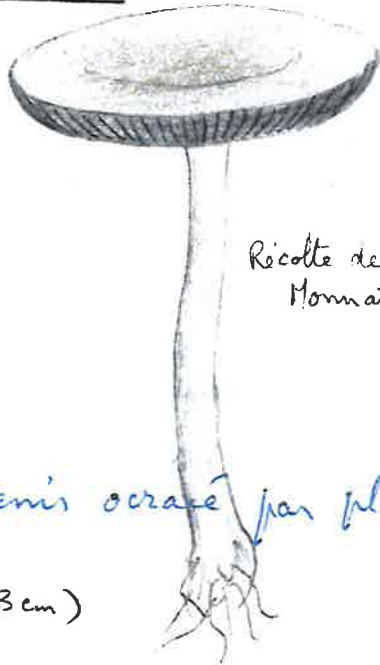 Récolte de
Monnai
ocracé par pl
3 cm)